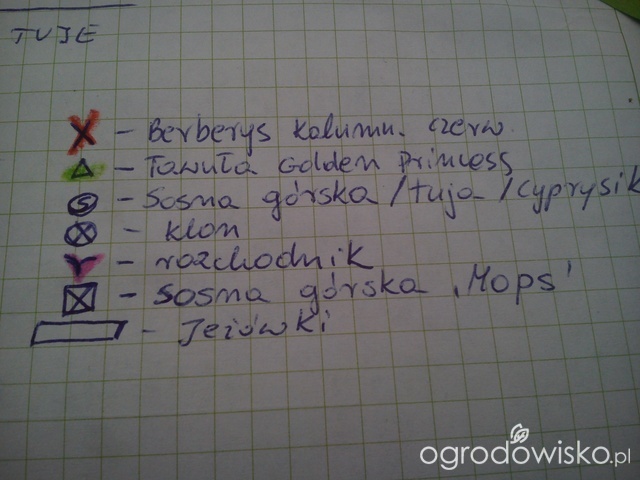 TUJE
X - Berberys kolumn. czerw.
△ - Tawuła Golden Princess
Ⓢ - Sosna górska / tuja / cyprysik
⊗ - klon
- rozchodnik
☒ - Sosna górska 'Mops'
- Jeżówki
ogrodowisko.pl